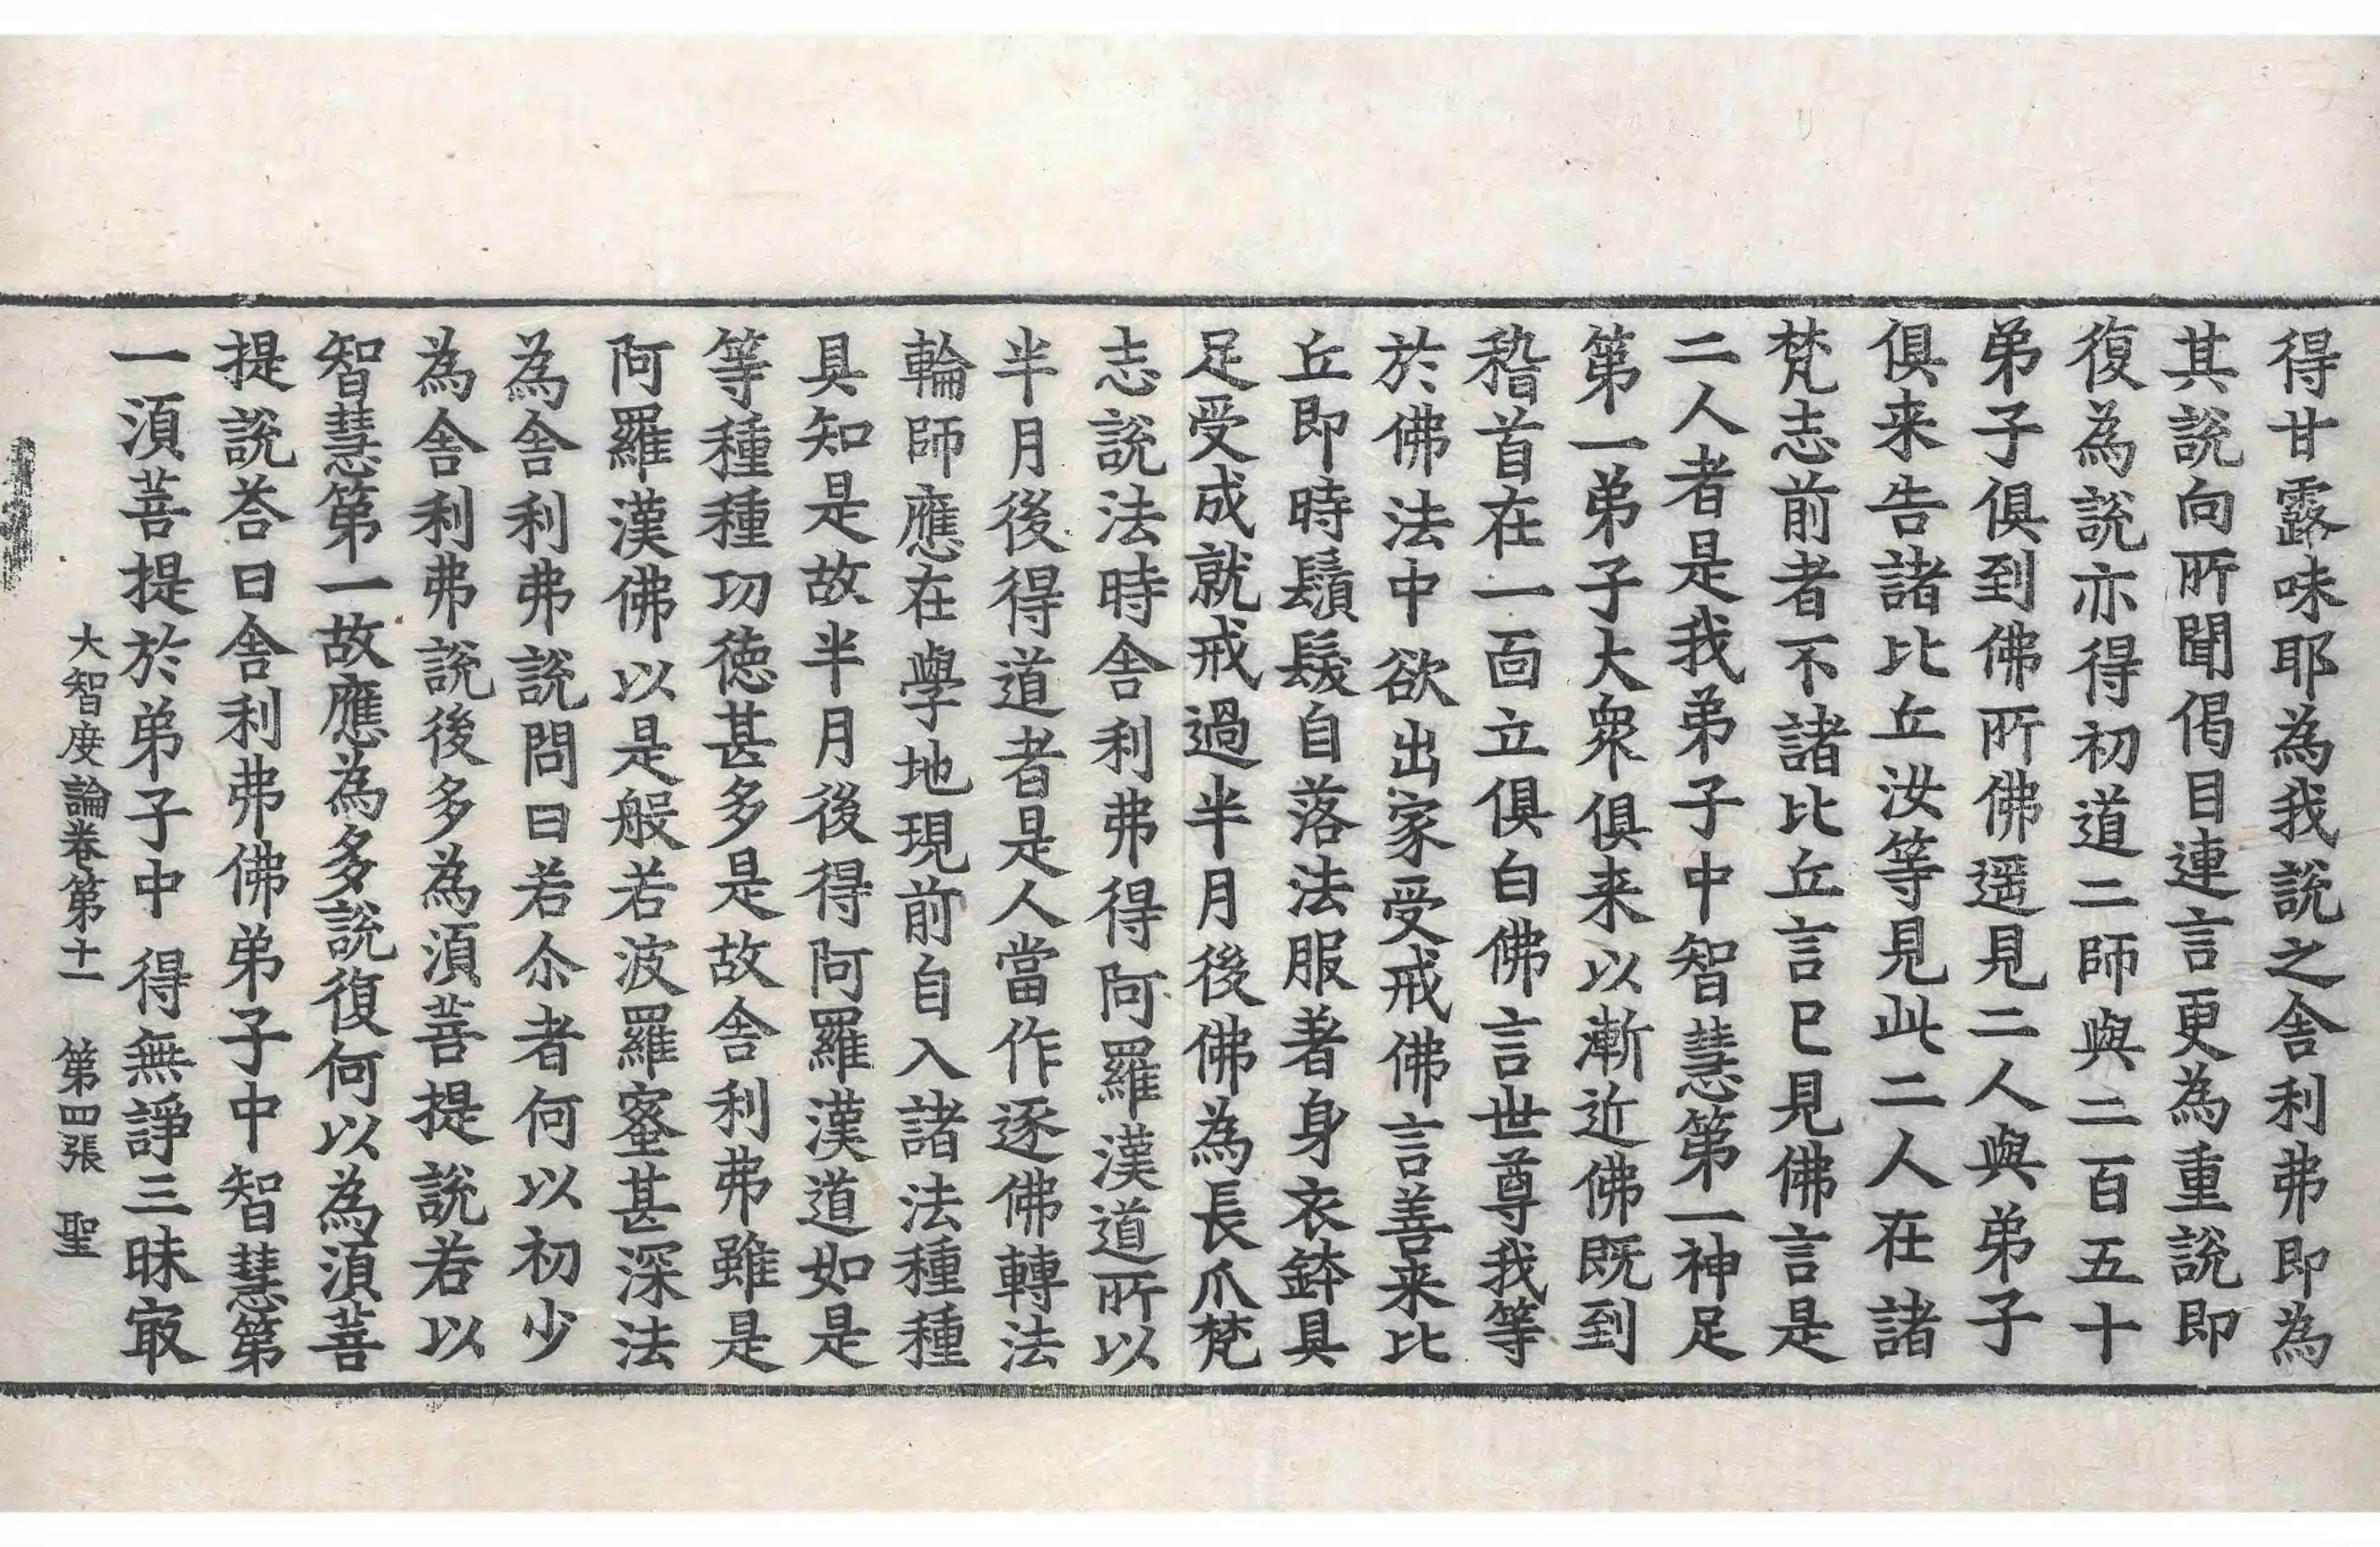 得甘露味耶為我說之舍利弗即為
其說向所聞偈目連言更為重說即
復為說亦得初道二師與二百五十
弟子俱到佛所佛遥見二人與弟子
俱来告諸比丘汝等見此二人在諸
梵志前者不諸比丘言已見佛言是
二人者是我弟子中智慧第一神足
第一弟子大衆俱来以漸近佛既到
稽首在一面立俱白佛言世尊我等
於佛法中欲出家受戒佛言善来比
丘即時鬚髮自落法服著身衣鉢具
足受成就戒過半月後佛為長爪梵
志說法時舍利弗得阿羅漢道所以
半月後得道者是人當作逐佛轉法
輪師應在學地現前自入諸法種種
具知是故半月後得阿羅漢道如是
等種種功德甚多是故舍利弗雖是
阿羅漢佛以是般若波羅蜜甚深法
為舍利弗說問曰若尒者何以初少
為舍利弗說後多為湏菩提說若以
智慧第一故應為多說復何以為湏菩
提說荅曰舍利弗佛弟子中智慧第
一湏菩提於弟子中得無諍三昧㝡
大智度論卷第十一　第四張　聖